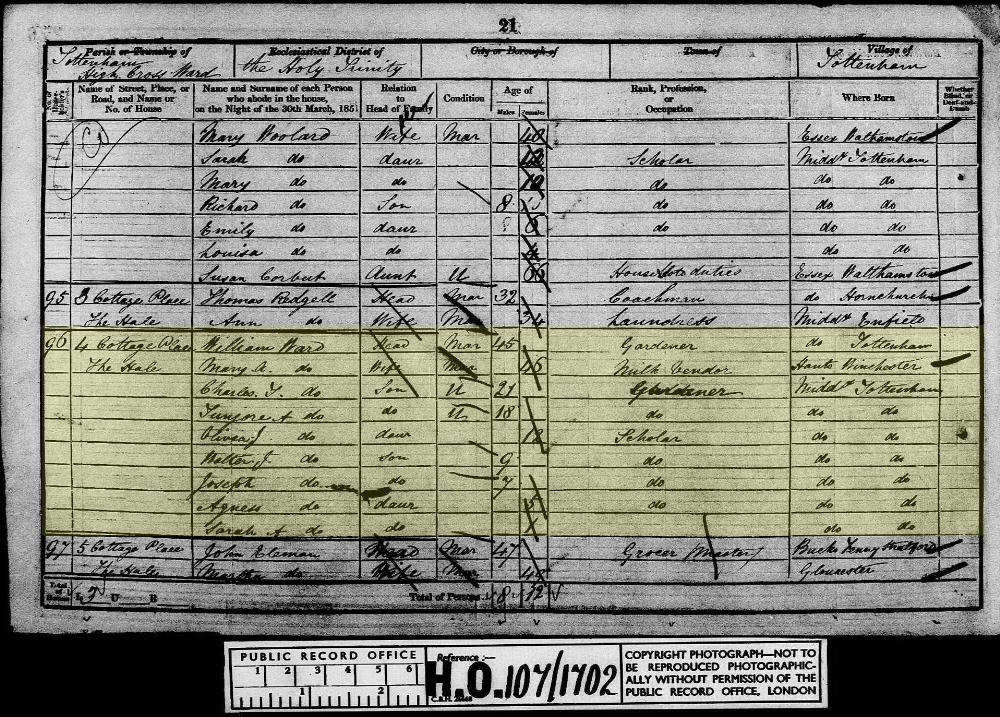 21
Parish or Township of Ecclesiastical District of City or Borough of Town of Village of
Tottenham High Cross Ward the Holy Trinity Tottenham
Name of Street, Place, or Road, and Name or No. of House
Name and Surname of each Person who abode in the house, on the Night of the 30th March, 1851
Relation to Head of Family
Condition
Age of
Males Females
Rank, Profession, or Occupation
Where Born
Whether Blind, or Deaf-and-Dumb
Mary Woolard Wife Mar 40 Essex Walthamstow
Sarah do daur Scholar Middx Tottenham
Mary do do 10 do do do
Richard do Son 8 do do do
Emily do daur 6 do do do
Louisa do do 4 do do
Susan Corbut Aunt U Household duties Essex Walthamstow
95 3 Cottage Place Thomas Redgell Head Mar 32 Coachman do Hornchurch
The Hale Ann do Wife Mar 34 Laundress Middx Enfield
96 4 Cottage Place William Ward Head Mar 45 Gardener do Tottenham
The Hale Mary A. do Wife Mar 46 Milk Vendor Hants Winchester
Charles J. do Son U 21 Gardener Middx Tottenham
A do do U 18 do do do
J do daur 12 Scholar do do
Walter J. do son 9 do do do
Joseph do do 7 do do do
Agness do daur 5 do do do
Sarah A do do do do
97 5 Cottage Place John Eleman Head Mar 47 Grocer (Master) Bucks Fenny Stratford
The Hale Martha do Wife Mar 45 Gloucester
Total of Houses I 3 U B Total of Persons 8 12
PUBLIC RECORD OFFICE
1 2 3 4 5 6
1 2
Reference :-
H.O. 107/1702
COPYRIGHT PHOTOGRAPH—NOT TO
BE REPRODUCED PHOTOGRAPHIC-
ALLY WITHOUT PERMISSION OF THE
PUBLIC RECORD OFFICE, LONDON